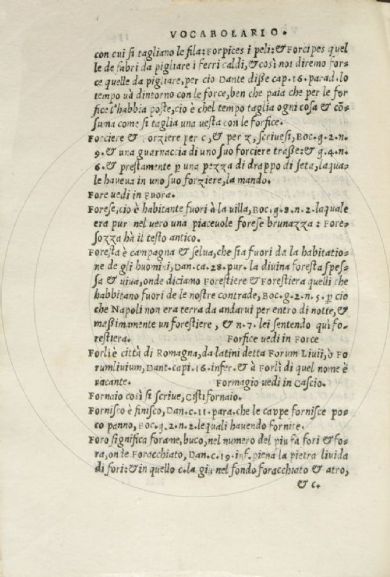 VOCABOLARIO.
con cui si tagliano le fila: Forpices i peli: & Forcipes quel
le de fabri da pigliare i ferri caldi, & così noi diremo for
ce quelle da pigliare, per cio Dante disse cap. 16. parad. lo
tempo và dintorno con le force, ben che paia che per le for
fice l'habbia poste, cio è chel tempo taglia ogni cosa & cõ
suma come si taglia una uesta con le forfice.
Forciere & Forziere per c, & per z, scriuesi, Boc. g. 2. n.
9. & una guarnaccia di uno suo forciere trasse: & g. 4. n.
6. & prestamente p una pezza di drappo di seta, la qua
le haueua in uno suo forziere, la mando.
Fore uedi in Fuora.
Forese, cio è habitante fuori à la villa, Boc. g. 8. n. 2. laquale
era pur nel vero una piaceuole forese brunazza: Fore-
sozza hà il testo antico.
Foresta è campagna & selua, che sia fuori da la habitatio-
ne de gli huomini, Dan. ca. 28. pur. la diuina foresta spes-
sa & uiua, onde diciamo Forestiere & Forestiera quelli che
habbitano fuori de le nostre contrade, Boc. g. 2. n. 5. p cio
che Napoli non era terra da andarui per entro di notte, &
massimamente un forestiere, & n. 7. lei sentendo quì fo-
restiera. Forfice uedi in Force
Forlì è città di Romagna, da latini detta Forum Liuii, ò Fo
rumliuium, Dant. cap. 16. infer. & à Forlì di quel nome è
vacante. Formagio uedi in Cascio.
Fornaio così si scriue, Cisti fornaio.
Fornisco è finisco, Dan. c. 11. para. che le cappe fornisce po
co panno, Boc. g. 2. n. 2. le quali hauendo fornite.
Foro significa forame, buco, nel numero del piu fa fori & fo
ra, onde Foracchiato, Dan. c. 19. inf. piena la pietra liuida
di fori: & in quello c. la giu nel fondo foracchiato & atro,
& c.